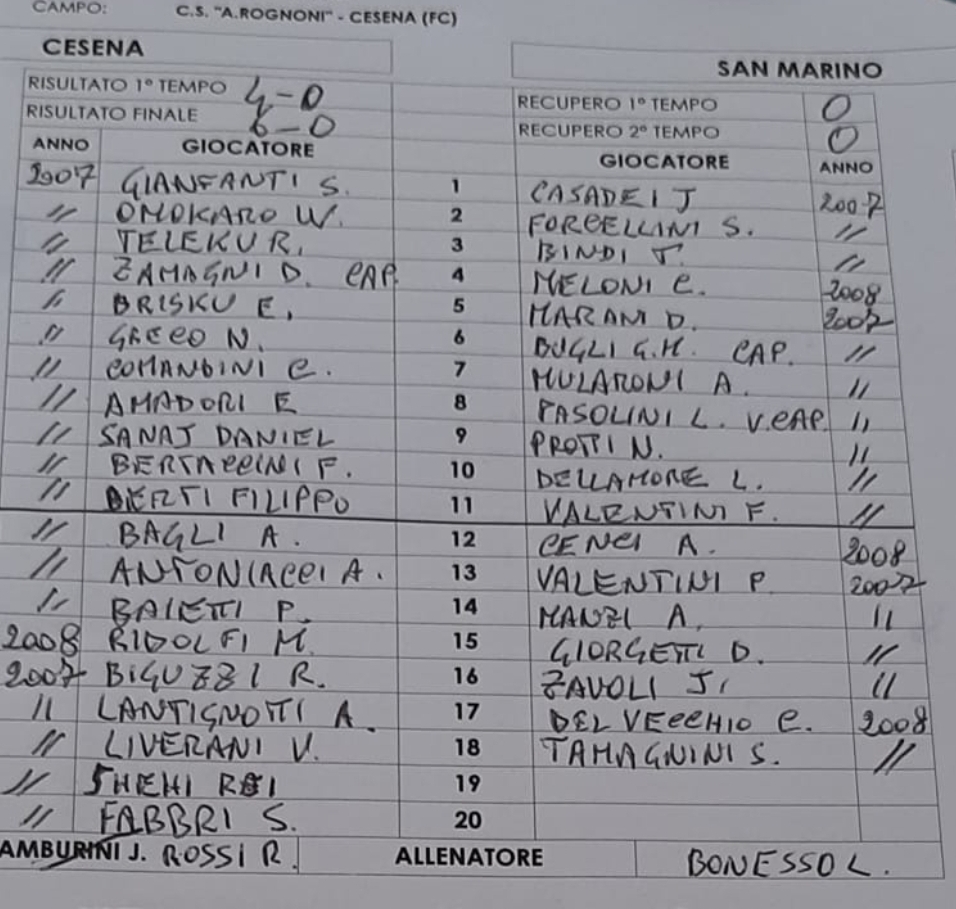 CAMPO: C.S. "A.ROGNONI" - CESENA (FC)
CESENA SAN MARINO
RISULTATO 1° TEMPO 4-0 RECUPERO 1° TEMPO 0
RISULTATO FINALE 6-0 RECUPERO 2° TEMPO 0
ANNO GIOCATORE GIOCATORE ANNO
2007 GIANFANTI S. 1 CASADEI J 2007
" OMOKARO W. 2 FORCELLINI S. "
" TELEKU R. 3 BINDI T. "
" ZAMAGNI D. CAP. 4 MELONI C. 2008
" BRISKU E. 5 MARANI D. 2007
" GRECO N. 6 BUGLI G.M. CAP. "
" COMANDINI C. 7 MULARONI A. "
" AMADORI E 8 PASOLINI L. V.CAP. "
" SANAJ DANIEL 9 PROTTI N. "
" BERTACCINI F. 10 DELLAMORE L. "
" BERTI FILIPPO 11 VALENTINI F. "
" BAGLI A. 12 CENCI A. 2008
" ANTONIACCI A. 13 VALENTINI P. 2007
" BAIETTI P. 14 MANZI A. "
2008 RIDOLFI M. 15 GIORGETTI D. "
2007 BIGUZZI R. 16 ZAVOLI J. "
" LANTIGNOTTI A. 17 DEL VECCHIO C. 2008
" LIVERANI V. 18 TAMAGNINI S. "
" SHEHI REI 19
" FABBRI S. 20
AMBURINI J. ROSSI R. ALLENATORE BONESSO L.